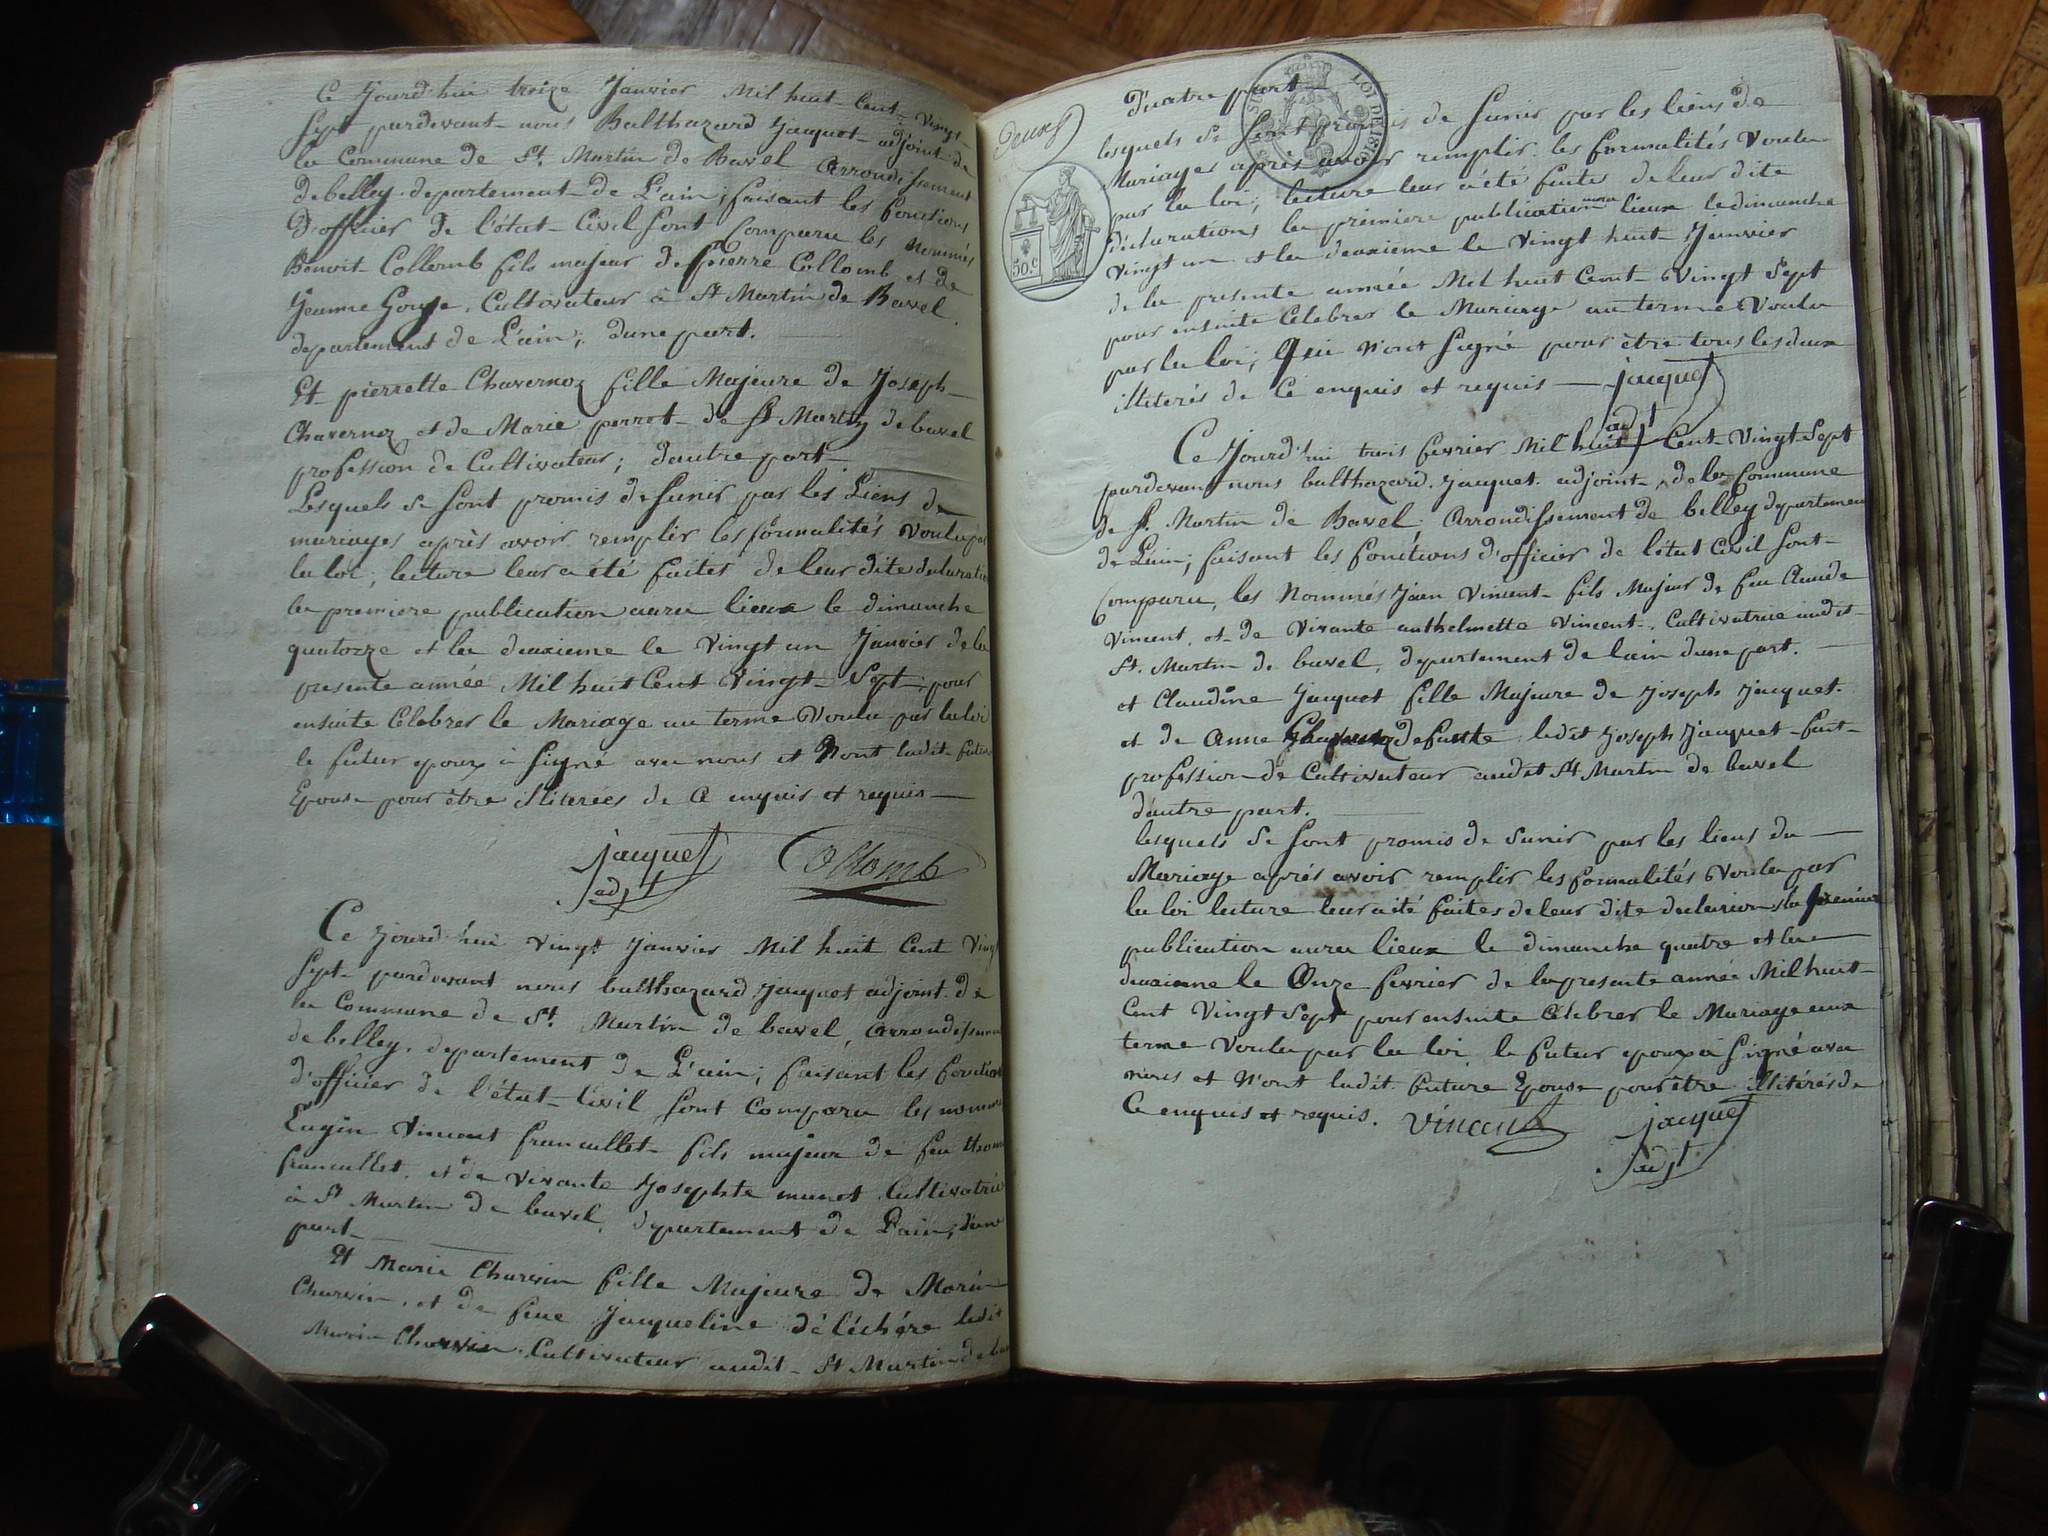 Ce Jourd'hui treize Janvier Mil huit Cent Vingt
Sept pardevant nous Balthazard Jacquet adjoint de
la Commune de St. Martin de Bavel arrondissement
de belley departement de L'ain; faisant les fonctions
d'officier de l'état Civil sont Comparu les nommés
Benoit Collomb fils majeur de pierre Collomb et de
Jeanne Gouge, Cultivateur à St Martin de Bavel
departement de L'ain; dune part.
Et pierrette Chavernoz fille Majeure de Joseph
Chavernoz et de Marie perret de St Martin de bavel
profession de Cultivateur; dautre part
Lesquels se sont promis de sunir par les Liens de
mariages après avoir remplir les formalités Voulu par
la loi, lecture leur a été faites de leur dite declaration
la premiere publication aura lieux le dimanche
quatorze et la deuxieme le Vingt un Janvier de la
presente année Mil huit Cent Vingt Sept; pour
ensuite Celebrer le Mariage au terme Voulu par la loi
le futur epoux à signé avec nous et Nont ladit future
Epouse pour être illiterées de Ce enquis et requis
jacquet Collomb
adjt
Ce Jourd'hui Vingt Janvier Mil huit Cent Vingt
Sept pardevant nous balthazard Jacquet adjoint de
la Commune de St. Martin de bavel, arrondissement
de belley, departement de L'ain; faisant les fonctions
d'officier de l'état Civil sont Comparu les nommés
Eugin Vincent francillet fils majeur de feu
francillet, et de Vivante Josephte munet Cultivatrice
à St Martin de bavel, departement de L'ain; d'une
part
Et Marie Charvin fille Majeure de Marin
Charvin, et de feue Jacqueline déléchére ledit
Marin Charvin Cultivateur audit St Martin de bavel
Dautre part
deux
LOI DE 1816
50.c
lesquels se sont promis de sunir par les liens de
Mariages après avoir remplir les formalités Voulu
par la loi; lecture leur a été faites de leur dite
déclarations la premiere publication aura lieux le dimanche
Vingt un et la deuxieme le Vingt huit Janvier
de la presente année Mil huit Cent Vingt Sept
pour ensuite Celebrer le Mariage au terme Voulu
par la loi; Qui N'ont signé pour être tous les deux
illiterés de Ce enquis et requis jacquet
adjt
Ce Jourd'hui trois fevrier Mil huit Cent Vingt Sept
pardevant nous balthazard Jacquet adjoint de la Commune
de St. Martin de Bavel; arrondissement de belley departement
de L'ain; faisant les fonctions d'officier de l'état Civil sont
Comparu, les Nommés Jean Vincent fils Majeur de feu Claude
Vincent, et de Vivante anthelmette Vincent, Cultivatrice audit
St. Martin de bavel, departement de lain dune part.
et Claudine Jacquet fille Majeure de Joseph Jacquet
et de Anne defunte ledit Joseph Jacquet fait
profession de Cultivateur audit St Martin de bavel
dautre part.
lesquels se sont promis de sunir par les liens du
Mariage après avoir remplir les formalités Voulu par
la loi lecture leur a été faites de leur dite declarion, la premiere
publication aura lieux le dimanche quatre et la
deuxieme le Onze fevrier de la presente année Mil huit
Cent Vingt Sept pour ensuite Celebrer le Mariage aux
terme Voulu par la loi le futur epoux à signé avec
nous et N'ont ladit future Epouse pour être illitérés de
Ce enquis et requis. Vincent jacquet
adjt